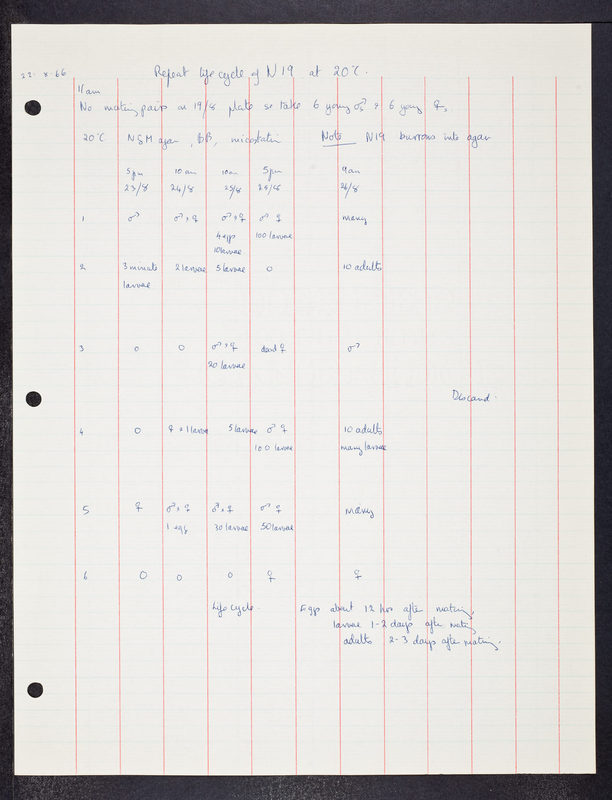 22-X-66 Repeat life cycle of N19 at 20°C.
11am
No mating pairs on 19/8 plate so take 6 young ♂s + 6 young ♀s.
20°C NGM agar, BB, nicostatin Note N19 burrows into agar
5pm 10am 10am 5pm 9am
23/8 24/8 25/8 25/8 26/8
1 ♂ ♂+♀ ♂+♀ ♂ ♀ many
4 eggs 100 larvae
10 larvae
2 3 minute 2 larvae 5 larvae 0 10 adults
larvae
3 0 0 ♂+♀ dead ♀ ♂
20 larvae
Discard.
4 0 ♀+1 larva 5 larvae ♂ ♀ 10 adults
100 larvae many larvae
5 ♀ ♂+♀ ♂+♀ ♂ ♀ many
1 egg 30 larvae 50 larvae
6 0 0 0 ♀ ♀
Life cycle. Eggs about 12 hrs after mating,
larvae 1-2 days after mating
adults 2-3 days after mating.